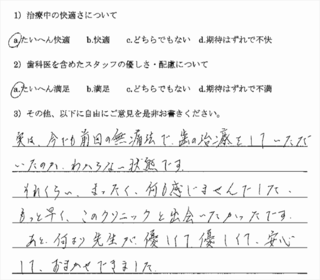 1）治療中の快適さについて
a.たいへん快適　b.快適　c.どちらでもない　d.期待はずれで不快
2）歯科医を含めたスタッフの優しさ・配慮について
a.たいへん満足　b.満足　c.どちらでもない　d.期待はずれで不満
3）その他、以下に自由にご意見を是非お書きください。
実は、今でも前回の無痛法で、歯の治療をしていただ
いたのか、わからない状態です。
それくらい、まったく、何も感じませんでした。
もっと早く、このクリニックと出会いたかったです。
あと、何より先生が、優しくて、優しくて、安心
して、おまかせできました。